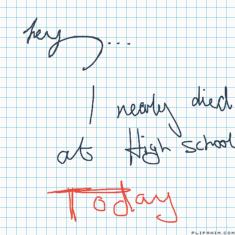 hey,...
I nearly died
at High school
Today
FLIPANIM.COM